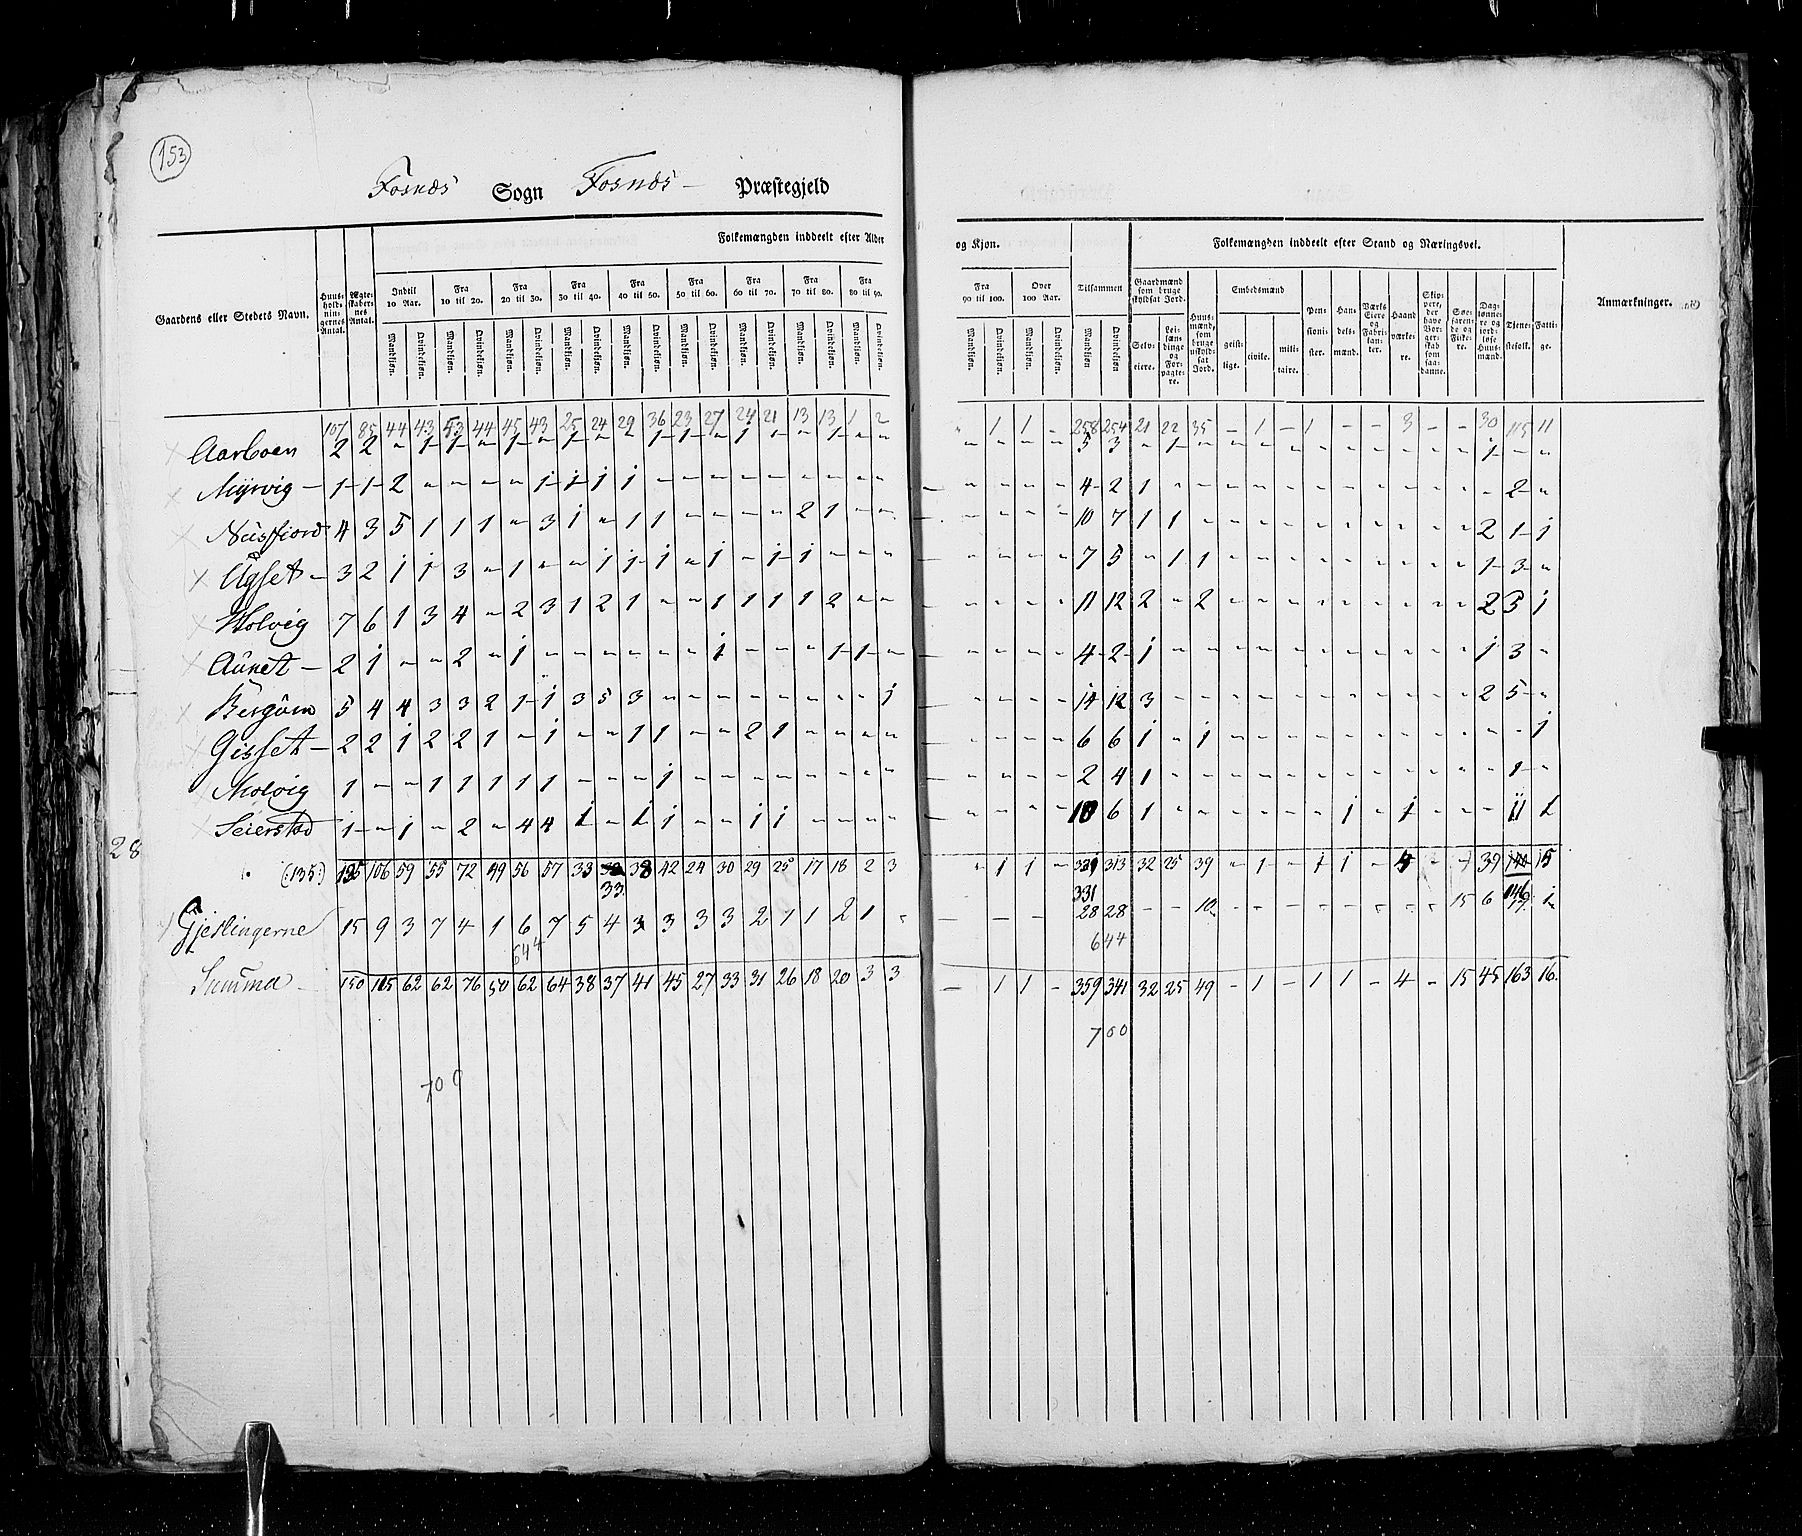 153
Fosnæs Sogn Fosnæs Præstegjeld
Gaardens eller Stedets Navn. Huusholdningernes Antal. Ægteskabernes Antal. Folkemængden inddeelt efter Alder og Kjøn. Tilsammen Folkemængden inddeelt efter Stand og Næringsvei. Anmærkninger.
Indtil 10 Aar. Fra 10 til 20. Fra 20 til 30. Fra 30 til 40. Fra 40 til 50. Fra 50 til 60. Fra 60 til 70. Fra 70 til 80. Fra 80 til 90. Fra 90 til 100. Over 100 Aar.
Mandkjøn. Qvindekjøn. Mandkjøn. Qvindekjøn. Mandkjøn. Qvindekjøn. Mandkjøn. Qvindekjøn. Mandkjøn. Qvindekjøn. Mandkjøn. Qvindekjøn. Mandkjøn. Qvindekjøn. Mandkjøn. Qvindekjøn. Mandkjøn. Qvindekjøn. Mandkjøn. Qvindekjøn. Mandkjøn. Qvindekjøn. Mandkjøn Qvindekjøn.
Gaardmænd som bruge skyldsat Jord. Selveiere. Leilændinge og Forpagtere. Huusmænd, som bruge uskyldsat Jord. Embedsmænd geistlige. civile. militaire. Pensionister. Handelsmænd. Værks Eiere og Fabrikanter. Haandværkere. Skippere, der have Borgerskab som saadanne. Søefarende og Fiskere. Daglønnere og jordløse Huusmænd. Tjenestefolk. Fattige.
107 85 44 43 53 44 45 43 25 24 29 36 23 27 24 21 13 13 1 2 " 1 1 - 258 254 21 22 35 - 1 - 1 - - 3 - - 30 115 11
Aarboen 2 2 " 1 1 " 1 " 1 " " 1 1 " 1 " " 1 " " " " " " 5 3 " 1 " " " " " " " " " " 1 - "
Myrvig - 1 1 2 " " " " 1 1 1 1 " " " " " " " " " - " " " 4 2 1 " " " " " " " " " " " " 2 "
Nusfiord 4 3 5 1 1 1 " 3 1 " 1 1 " " " " 2 1 " " - " " " 10 7 1 1 " " " " " " " " " " 2 1 1
Agset - 3 2 1 1 3 " 1 " " 1 1 1 " 1 " 1 1 " " " - " " " 7 5 " 1 1 " " " " " " " " " 1 3 "
Holvig 7 6 1 3 4 " 2 3 1 2 1 " " 1 1 1 1 2 " " - " " " 11 12 2 " 2 " " " " " " " " " 2 3 1
Aunet - 2 1 " " 2 " 1 " " " " " " 1 " " " 1 1 " - " " " 4 2 1 " " " " " " " " " " " 1 3 "
Bergøen 5 4 4 3 3 2 1 1 3 5 3 " " " " " " " " 1 " " " " 14 12 3 " " " " " " " " " " " 2 5 "
Gisset - 2 2 1 2 2 1 " 1 " " 1 1 " " 2 1 " " " " - " " " 6 6 1 " 1 " " " " " " " " " " " 1
Molvig 1 " " 1 1 1 1 1 " " " 1 " " " " " " " " - " " " 2 4 1 " " " " " " " " " " " " 1 "
Seierstad 1 " 1 " 2 " 4 4 1 " 1 1 " " 1 1 " " " " - " " " 10 6 1 " " " " " " 1 " 1 " " " 11 1
28
(:135:) 135 106 59 55 72 49 56 57 33 33 38 42 24 30 29 25 17 18 2 3 " 1 1 " 331 313 32 25 39 " 1 - 1 1 - 4 - - 39 146 15
Gjeslingerne 15 9 3 7 4 1 6 7 5 4 3 3 3 3 2 1 1 2 1 " - - - - 28 28 - - 10 " - - - - - - - 15 6 17 1
644 644
Summa 150 115 62 62 76 50 62 64 38 37 41 45 27 33 31 26 18 20 3 3 - 1 1 - 359 341 32 25 49 - 1 - 1 1 - 4 - 15 45 163 16.
700
700